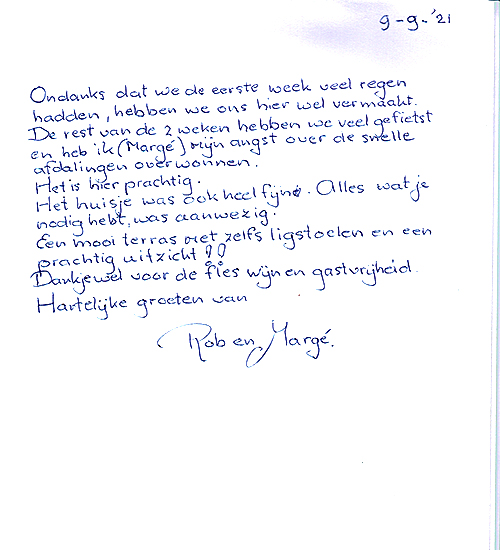 9-9-'21
Ondanks dat we de eerste week veel regen
hadden, hebben we ons hier wel vermaakt.
De rest van de 2 weken hebben we veel gefietst
en heb ik (Margé) mijn angst over de snelle
afdalingen overwonnen.
Het is hier prachtig.
Het huisje was ook heel fijne. Alles wat je
nodig hebt, was aanwezig.
Een mooi terras met zelfs ligstoelen en een
prachtig uitzicht !!
Dankjewel voor de fles wijn en gastvrijheid.
Hartelijke groeten van
Rob en Margé.